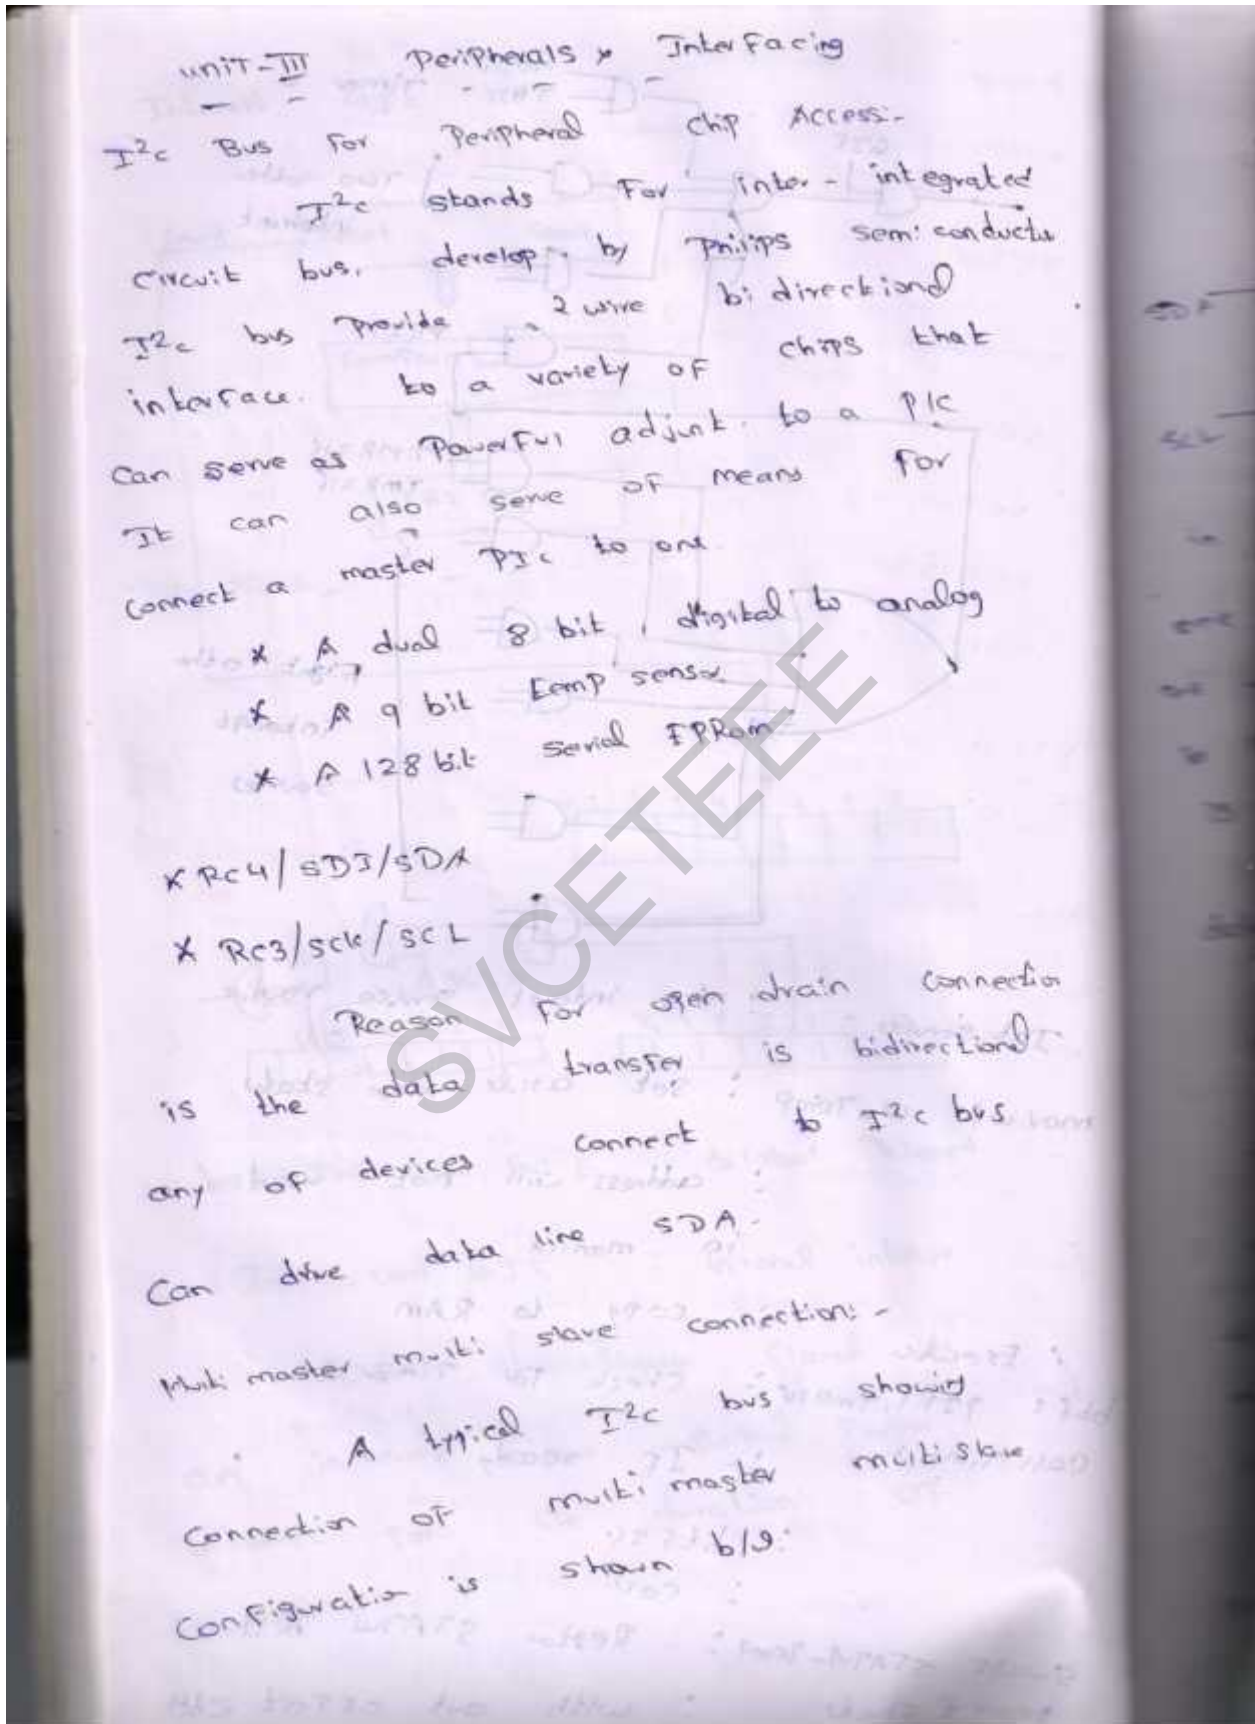 UNIT-III Peripherals & Interfacing
I²C Bus For Peripheral Chip Access:-
I²C stands For inter-integrated
circuit bus, develop by Philips semiconductu
I²C bus provide 2 wire bi directional
interface. to a variety of chips that
can serve as Powerful adjunt. to a PIC
It can also serve of means For
connect a master PIC to one
* A dual 8 bit, digital to analog
* A 9 bit temp sensor
* A 128 bit serial EPROM
* RC4/SDI/SDA
* RC3/SCK/SCL
Reason For open drain connection
is the data transfer is bidirectional
any of devices connect to I²C bus
Can drive data line SDA.
Multi master multi slave connection:-
A typical I²C bus showing
Connection of multi master multi slave
Configuration is shown b/g.
SVCETEEE
SDA
SCL